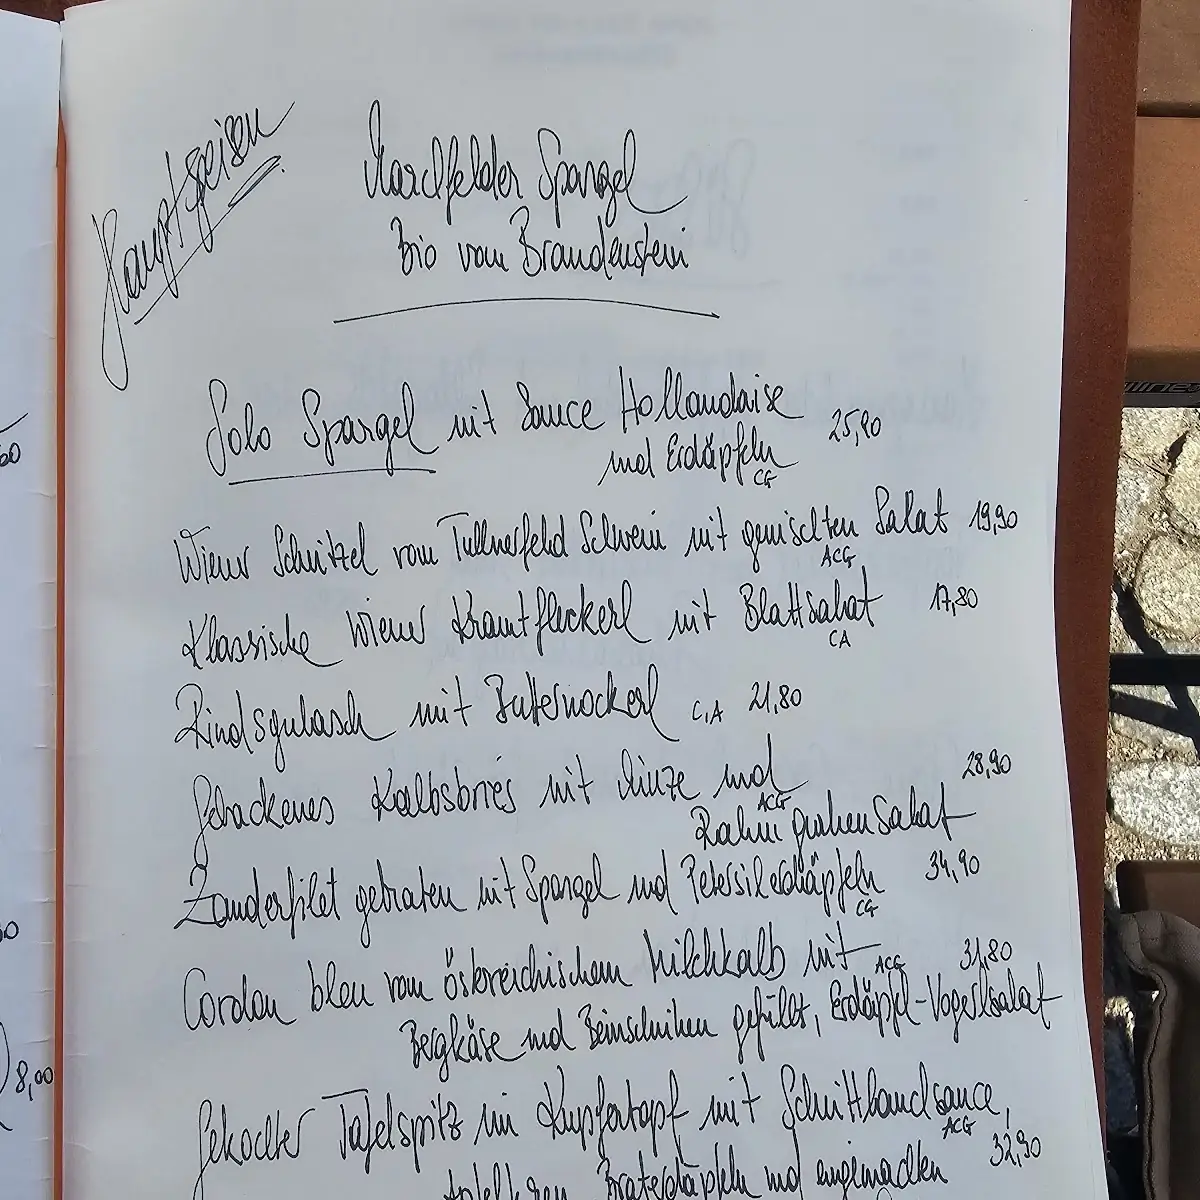 Hauptspeisen
Marchfelder Spargel
Bio vom Brandenstein
Solo Spargel mit Sauce Hollandaise 25,90
und Erdäpfeln
CG
Wiener Schnitzel vom Tullnerfeld Schwein mit gemischten Salat 19,90
ACG
Klassische Wiener Krautfleckerl mit Blattsalat 17,80
CA
Rindsgulasch mit Butternockerl C,A 21,80
Gebackenes Kalbsbries mit Minze und 28,90
ACG
Rahm gurkensalat
Zanderfilet gebraten mit Spargel und Petersilerdäpfeln 34,90
CG
Cordon bleu vom österreichischem Milchkalb mit 31,80
ACG
Bergkäse und Beinschinken gefüllt, Erdäpfel-Vogerlsalat
Gekochter Tafelspitz im Kupfertopf mit Schnittlauchsauce,
ACG
32,90
Apfelkren, Braterdäpfeln und eingemachten
8,00